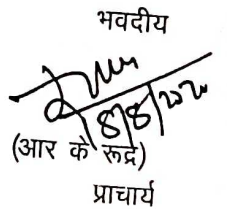 भवदीय
18/8/2020
(आर के रूद्रे)
प्राचार्य